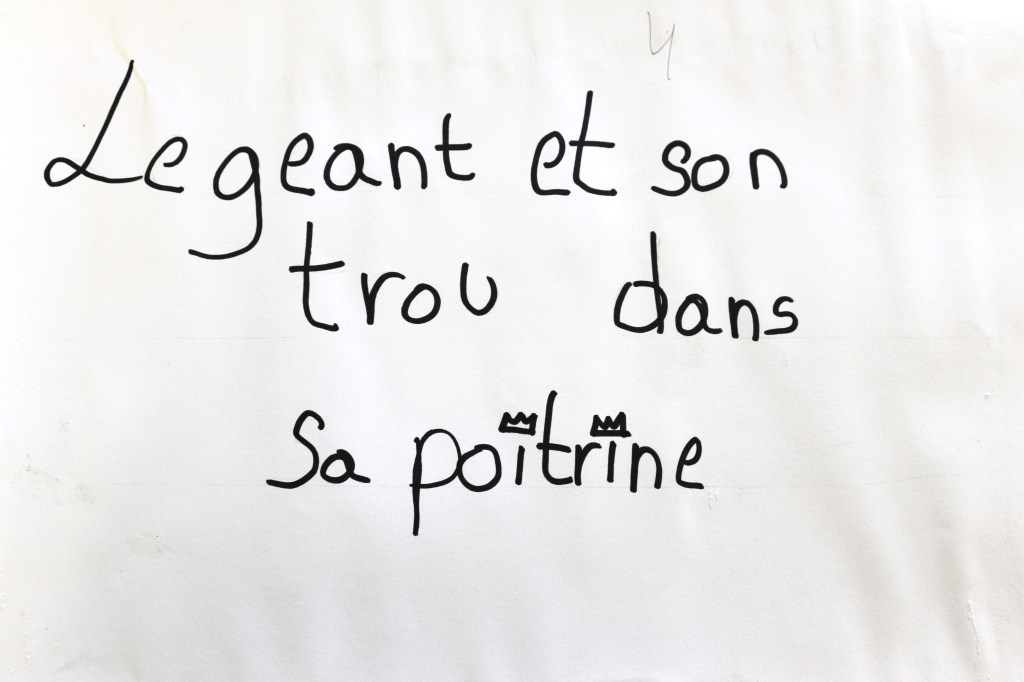 4
Le geant et son
trou dans
Sa poitrine